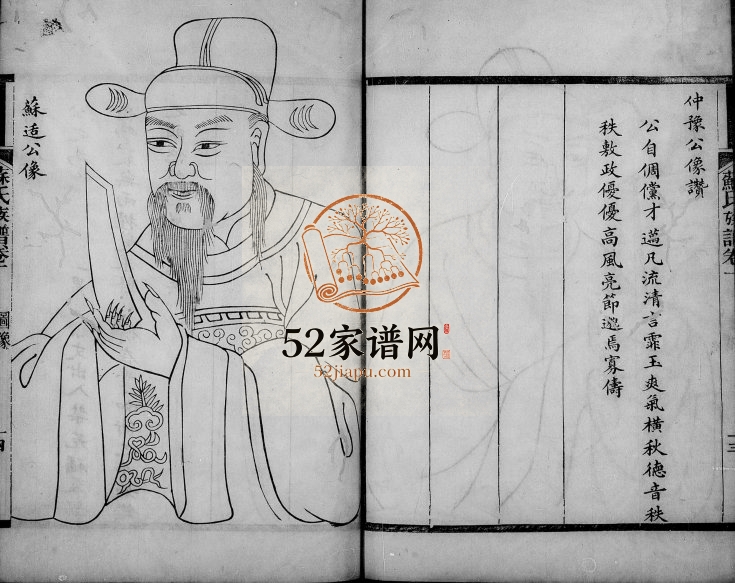 仲豫公像讚
公自倜儻才邁凡流清言霏玉爽氣橫秋德音秩
秩敷政優優高風亮節邈焉寡儔
蘇适公像
蘇氏族譜卷一
圖像
52家谱网
52jiapu.com